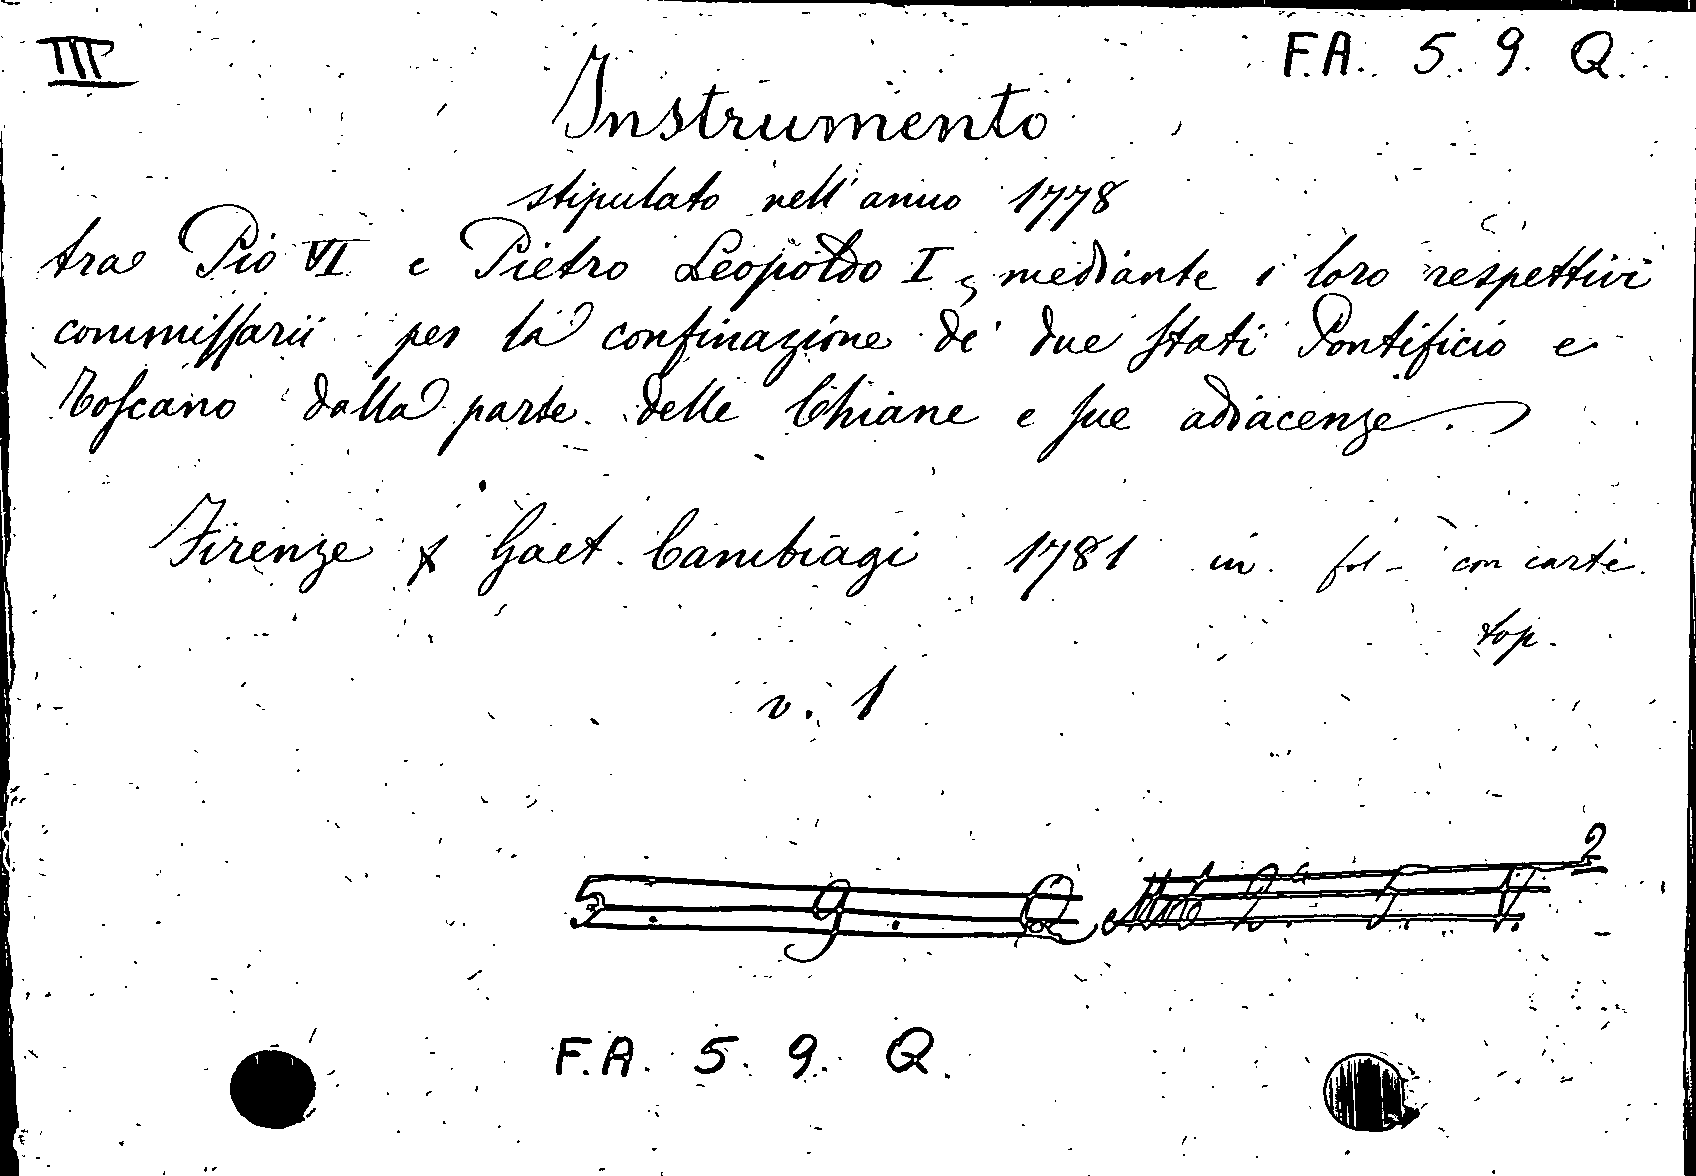 III
F.A. 5. 9. Q.
Instrumento
stipulato nell'anno 1778
tra Pio VI e Pietro Leopoldo I, mediante i loro respettivi
commissarii per la confinazione de' due stati Pontificio e
Toscano dalla parte delle Chiane e sue adiacenze.
Firenze Gaet. Cambiagi 1781 in fol- con carte
top.
v. 1
5. 9. Q
2
F.A. 5. 9. Q.